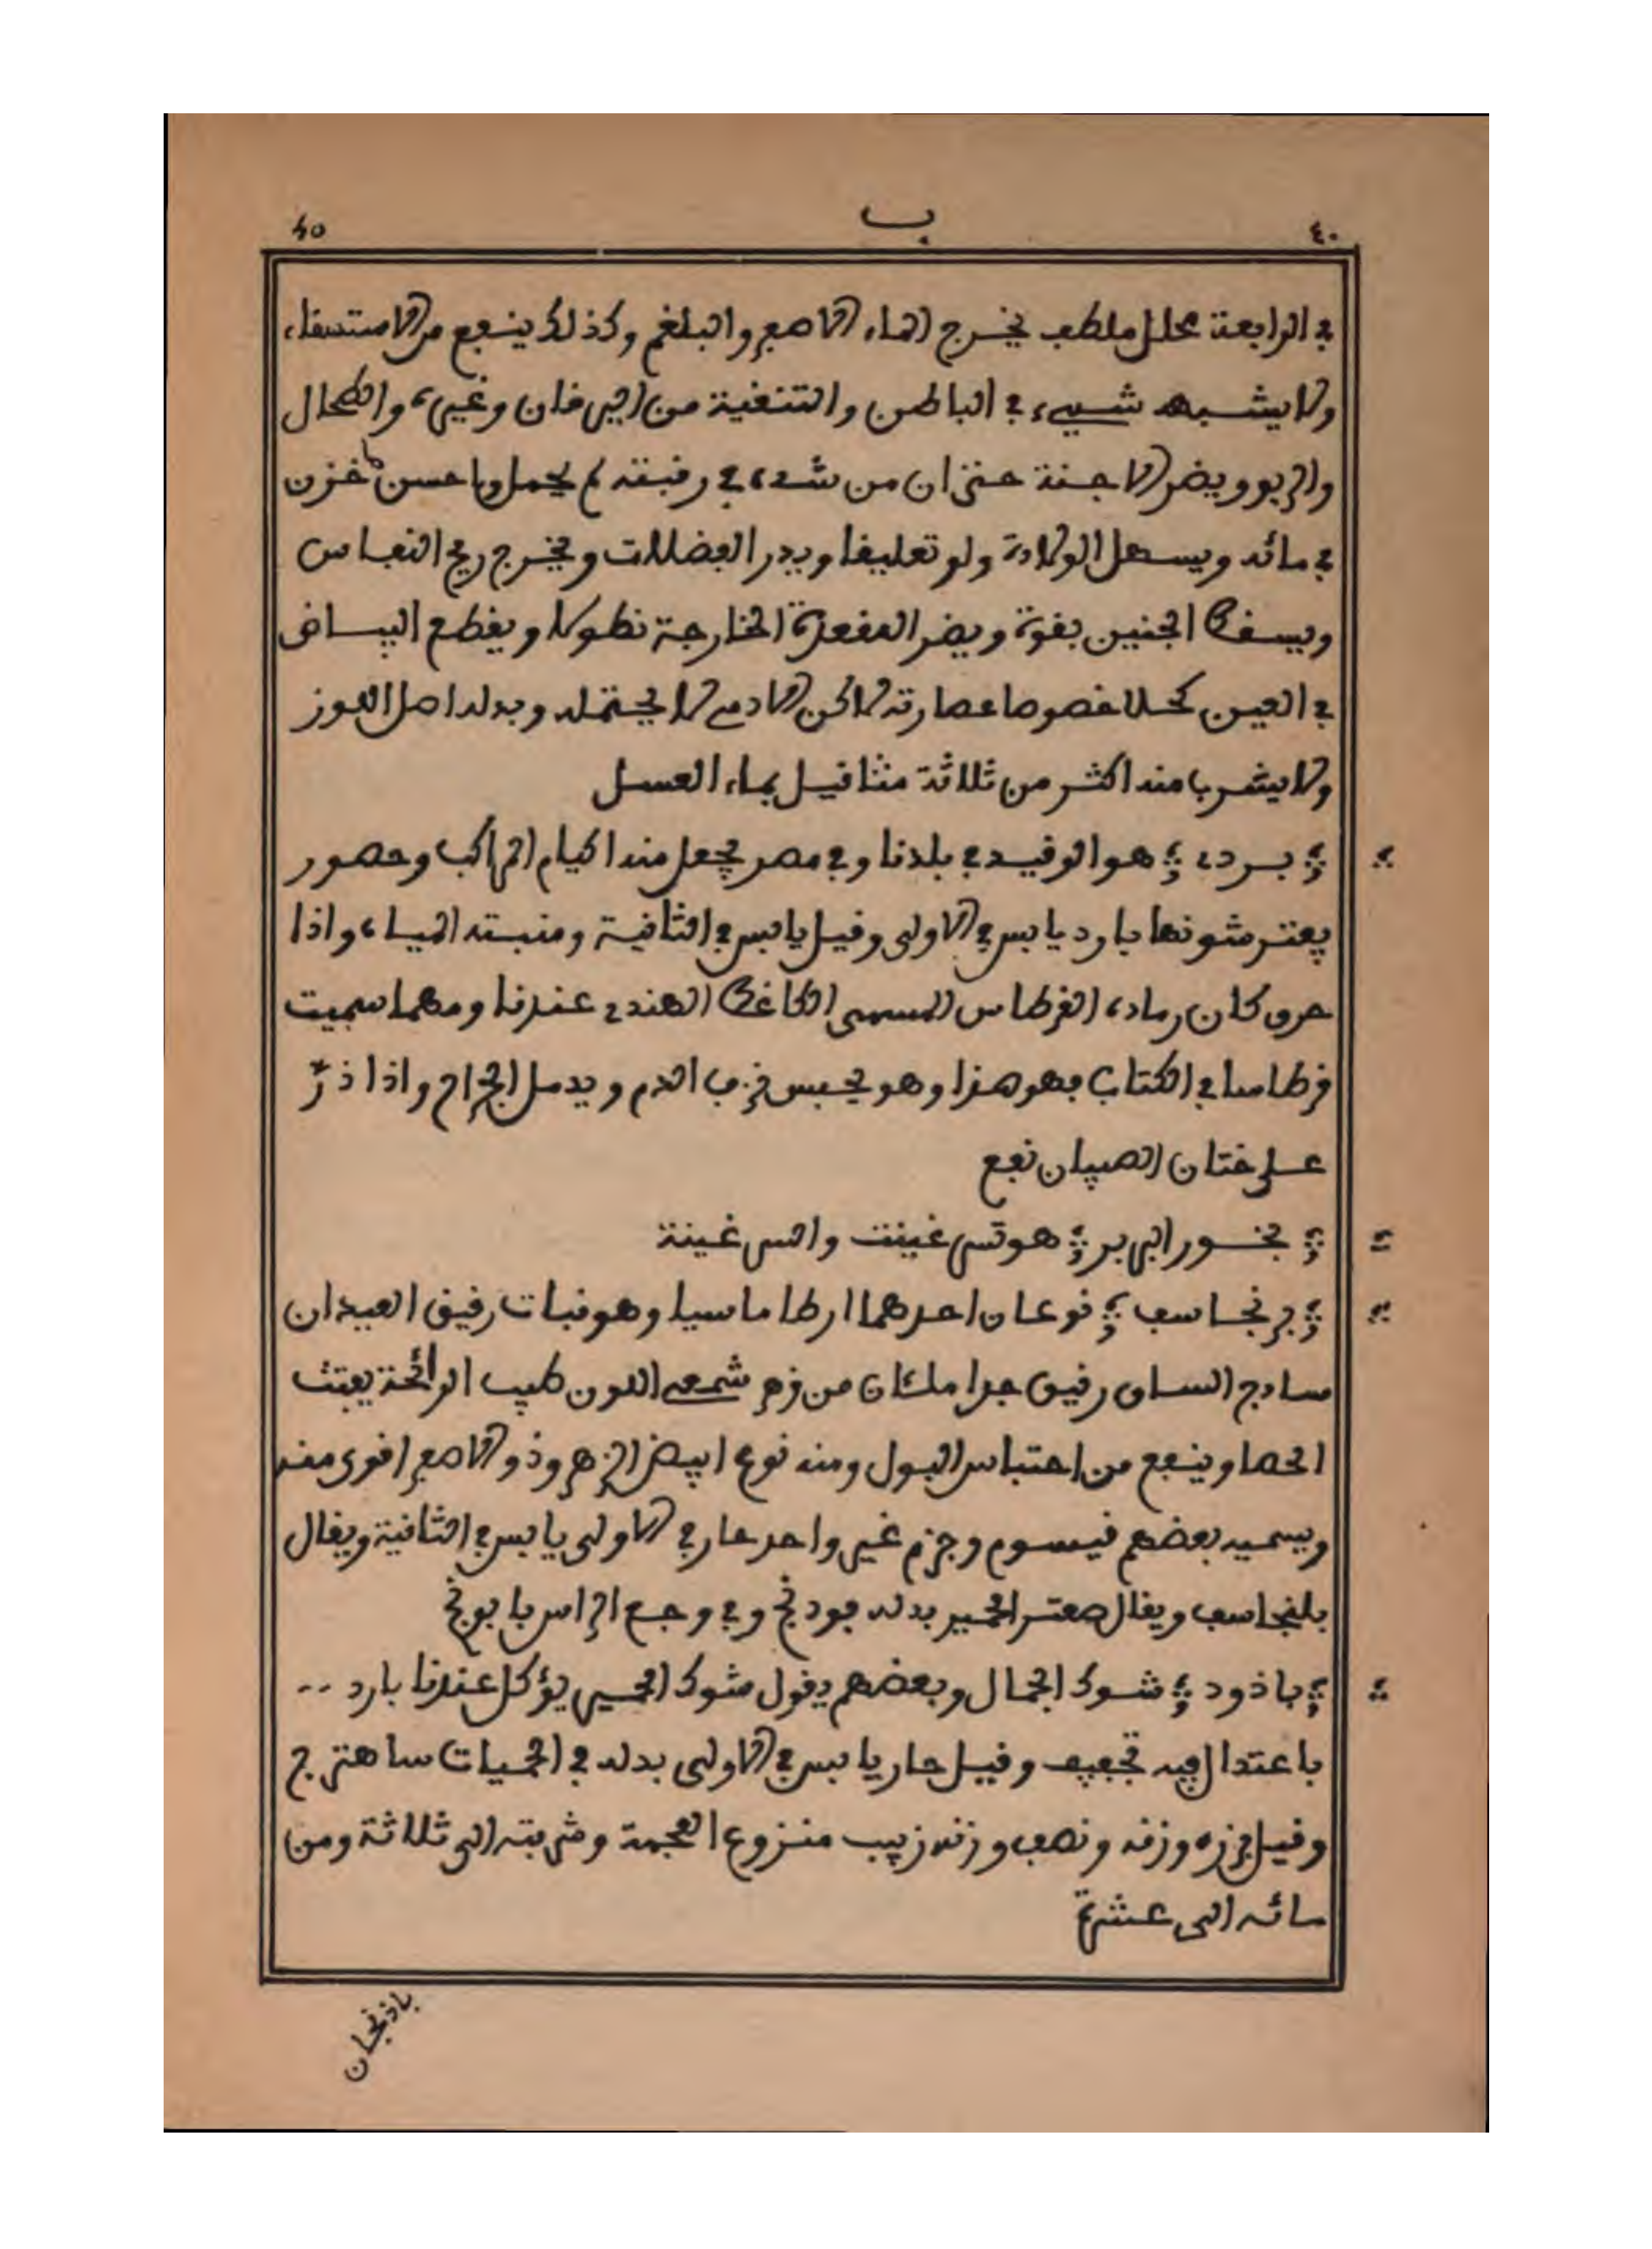 ٤٠ ب 40
في الرابعة محلل ملطف يخرج الماء الاصفر والبلغم وكذلك ينفع من الاستسقاء
ولا يشبهه شيىء في الباطن والتنقية من اليرقان وغيره والطحال
والربو ويضر الاجنة حتى ان من شىء في رقبته لم يحمل وما حسن خزن
في مائه ويسهل الولادة ولو تعليقا ويدر الفضلات ويخرج ريح النفاس
ويسقط الجنين بقوة ويضر المقعدة الخارجة نطولا ويقطع البياض
في العين كحلا خصوصا عصارته لاكن الادمي لا يحتمله وبدله اصل اللوز
ولا يشرب منه اكثر من ثلاثة مثاقيل بماء العسل
بردي هو الوقيد في بلدنا وفي مصر يجعل منه اكيام المراكب وحصور
يفترشونها بارد يابس في الاولى وقيل يابس في الثانية ومنبته المياه واذا
حرق كان رماده القرطاس المسمى الكاغط الهندي عندنا ومهما سميت
قرطاسا في الكتاب فهو هذا وهو يحبس نزف الدم ويدمل الجراح واذا ذرّ
على ختان الصبيان نفع
بخور البربر هو تسرغينت واسرغينة
برنجاسف نوعان احدهما ارطاماسيا وهو نبات رقيق العيدان
سادج الساق رقيق جدا ملئان من زهر شمعي اللون طيب الرائحة يفتت
الحصا وينفع من احتباس البول ومنه نوع ابيض الزهر وذو الاصفر اقوى منه
ويسميه بعضهم قيسوم وجزم غير واحد حار في الاولى يابس في الثانية ويقال
بلنجاسف ويقال صعتر الحمير بدله فودنج وفي وجع الراس بابونج
باذورد شوك الجمال وبعضهم يقول شوك الحمير يؤكل عندنا بارد --
باعتدال فيه تجفيف وقيل حار يابس في الاولى بدله في الحميات ساهترج
وقيل بزره وزنه ونصف وزنه زبيب منزوع العجمة وشربته الى ثلاثة ومن
مائه الى عشرة
باذنجان